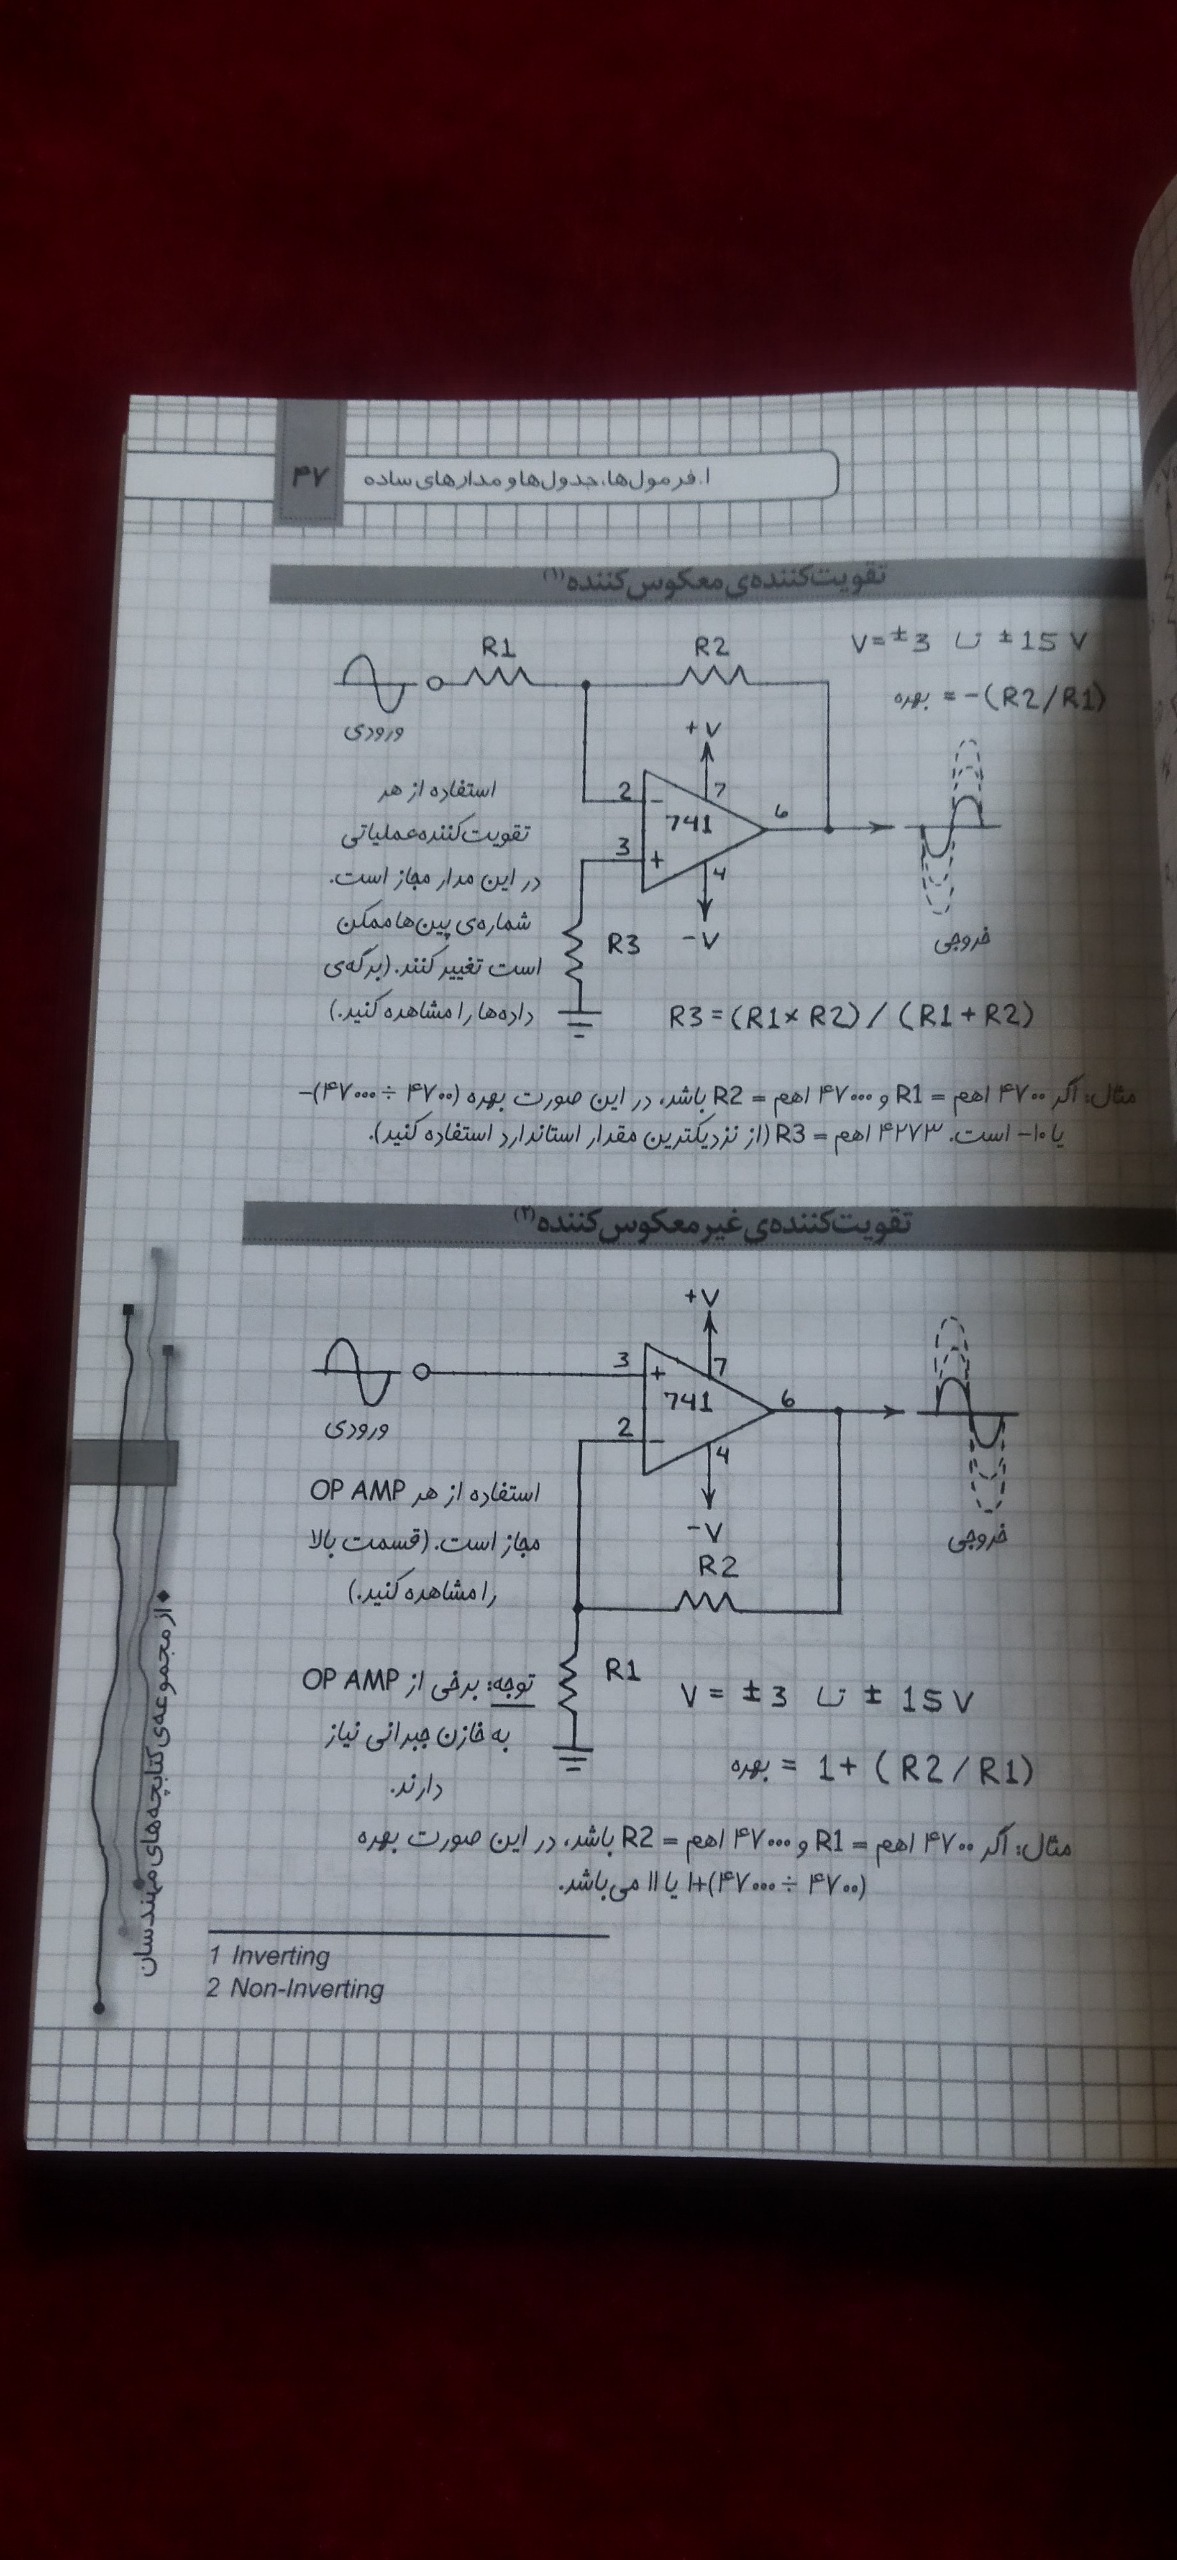 ۴۷
۱.فرمول‌ها، جدول‌ها و مدارهای ساده
تقویت‌کننده‌ی معکوس‌کننده(۱)
R1
R2
V=±3 تا ±15 V
بهره = -(R2/R1)
ورودی
+V
2
-
7
741
6
3
+
4
-V
R3
خروجی
استفاده از هر
تقویت‌کننده عملیاتی
در این مدار مجاز است.
شماره‌ی پین‌ها ممکن
است تغییر کنند. (برگه‌ی
داده‌ها را مشاهده کنید.)
R3=(R1×R2)/(R1+R2)
مثال: اگر ۴۷۰۰ اهم = R1 و ۴۷۰۰۰ اهم = R2 باشد، در این صورت بهره (۴۷۰۰ ÷ ۴۷۰۰۰)-
یا ۱۰- است. ۴۲۷۳ اهم = R3 (از نزدیکترین مقدار استاندارد استفاده کنید).
تقویت‌کننده‌ی غیر معکوس‌کننده(۲)
+V
3
+
7
741
6
2
-
4
-V
R2
ورودی
خروجی
استفاده از هر OP AMP
مجاز است. (قسمت بالا
را مشاهده کنید.)
R1
توجه: برخی از OP AMP
به خازن جبرانی نیاز
دارند.
V = ±3 تا ± 15 V
بهره = 1+ (R2/R1)
مثال: اگر ۴۷۰۰ اهم = R1 و ۴۷۰۰۰ اهم = R2 باشد، در این صورت بهره
(۴۷۰۰ ÷ ۴۷۰۰۰)+۱ یا ۱۱ می‌باشد.
1 Inverting
2 Non-Inverting
از مجموعه‌ی کتابچه‌های مهندسان